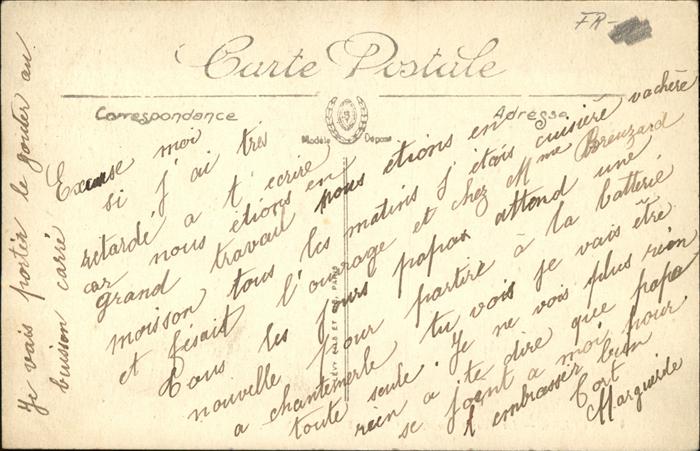 FR-
Carte Postale
Correspondance
Adresse
Modèle Déposé
LEVY FILS ET Cie, PARIS
Excuse moi
si j'ai tres
retardé a t'ecrire
car nous étions en
grand travail nous etions en
moisson tous les matins j'étais cuisière vachère
et fésait l'ouvrage et chez Mme Breuzard
Tous les jours papa attend une
nouvelle pour partire à la batterie
a chantemerle tu vois je vais être
toute seule. Je ne vois plus rien
rien a te dire que papa
se joent a moi pour
t embrasser bien
fort
Marguerite
Je vais porter le gouter au
buision carré